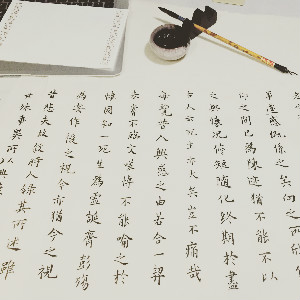 矣向之所欣
事遷感慨係之
仰之間已為陳迹猶不能不以
之興懷況修短隨化終期於盡
古人云死生亦大矣豈不痛哉
每覽昔人興感之由若合一契
未嘗不臨文嗟悼不能喻之於
懷固知一死生為虛誕齊彭殤
為妄作後之視今亦猶今之視
昔悲夫故列敘時人錄其所述雖
世殊事異所以興懷